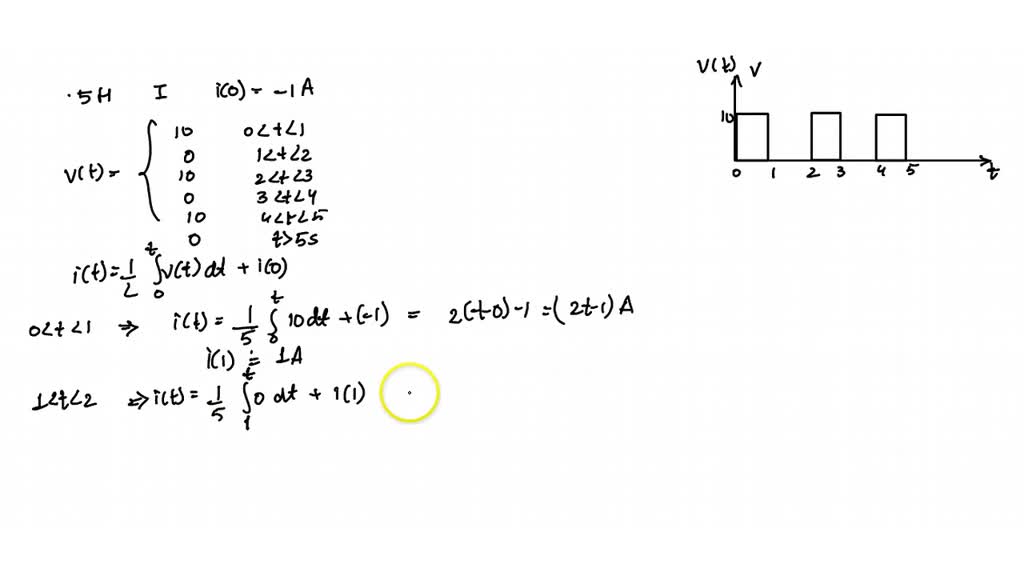 ·5H I i(0) = -1A
V(t) = { 10 0<t<1
0 1<t<2
10 2<t<3
0 3<t<4
10 4<t<5
0 t>5s
i(t) = 1/L ∫₀ᵗ v(t) dt + i(0)
0<t<1 ⇒ i(t) = 1/5 ∫₀ᵗ 10 dt + (-1) = 2(t-0)-1 = (2t-1) A
i(1) = 1A
1<t<2 ⇒ i(t) = 1/5 ∫₁ᵗ 0 dt + i(1)
V(t) V
10
0 1 2 3 4 5 t